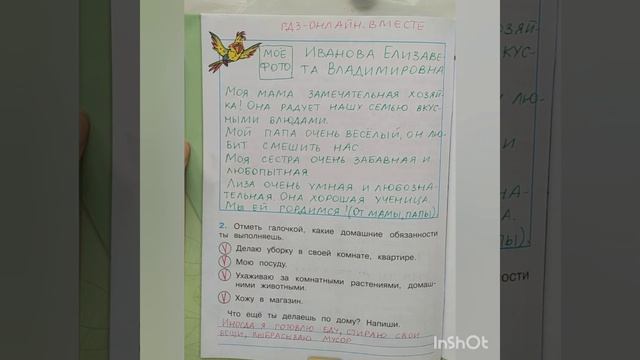 РДЗ-ОНЛАЙН.ВМЕСТЕ
МОЁ ФОТО
ИВАНОВА ЕЛИЗАВЕ-
ТА ВЛАДИМИРОВНА
МОЯ МАМА ЗАМЕЧАТЕЛЬНАЯ ХОЗЯЙ-
КА! ОНА РАДУЕТ НАШУ СЕМЬЮ ВКУС-
НЫМИ БЛЮДАМИ.
МОЙ ПАПА ОЧЕНЬ ВЕСЁЛЫЙ, ОН ЛЮ-
БИТ СМЕШИТЬ НАС
МОЯ СЕСТРА ОЧЕНЬ ЗАБАВНАЯ И
ЛЮБОПЫТНАЯ
ЛИЗА ОЧЕНЬ УМНАЯ И ЛЮБОЗНА-
ТЕЛЬНАЯ. ОНА ХОРОШАЯ УЧЕНИЦА.
МЫ ЕЙ ГОРДИМСЯ! (ОТ МАМЫ, ПАПЫ)
2. Отметь галочкой, какие домашние обязанности
ты выполняешь.
V Делаю уборку в своей комнате, квартире.
V Мою посуду.
V Ухаживаю за комнатными растениями, домаш-
ними животными.
V Хожу в магазин.
Что ещё ты делаешь по дому? Напиши.
ИНОГДА Я ГОТОВЛЮ ЕДУ, СТИРАЮ СВОИ
ВЕЩИ, ВЫБРАСЫВАЮ МУСОР
InShOt